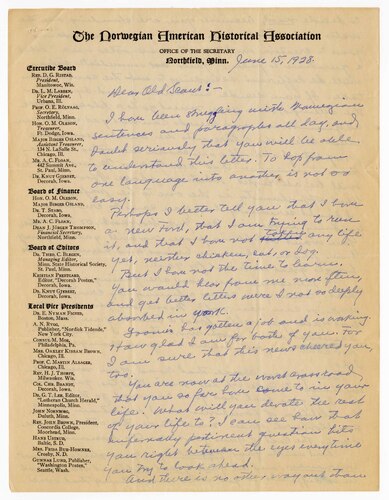 The Norwegian American Historical Association
OFFICE OF THE SECRETARY
Northfield, Minn.
June 15, 1928.
Executive Board
REV. D. G. RISTAD,
President,
Manitowoc, Wis.
DR. L. M. LARSEN,
Vice President,
Urbana, Ill.
PROF. O. E. RÖLVAAG,
Secretary,
Northfield, Minn.
HON. O. M. OLESON,
Treasurer,
Ft. Dodge, Iowa.
MAJOR BIRGER OSLAND,
Assistant Treasurer,
134 N. LaSalle St.,
Chicago, Ill.
MR. A. C. FLOAN,
442 Summit Ave.,
St. Paul, Minn.
DR. KNUT GJERSET,
Decorah, Iowa.
Board of Finance
HON. O. M. OLESON,
MAJOR BIRGER OSLAND,
DR. T. STABO,
Decorah, Iowa.
MR. A. C. FLOAN,
DEAN J. JÖRGEN THOMPSON,
Financial Secretary,
Northfield, Minn.
Board of Editors
DR. THEO. C. BLEGEN,
Managing Editor,
Minn. State Historical Society
St. Paul, Minn.
KRISTIAN PRESTGARD,
Editor, "Decorah Posten",
Decorah, Iowa.
DR. KNUT GJERSET,
Decorah, Iowa.
Local Vice Presidents
DR. E. NYMAN FIGVED,
Boston, Mass.
A. N. RYGG,
Publisher, "Nordisk Tidende,"
New York City.
CONSUL M. MOE,
Philadelphia, Pa.
MRS. OAKLEY KISSAM BROWN,
Chicago, Ill.
PROF. C. MARTIN ALSAGER,
Chicago, Ill.
REV. H. J. THORPE,
Milwaukee, Wis.
COL. CHR. BRANDT,
Decorah, Iowa.
DR. G. T. LEE, Editor,
"Lutheran Church Herald,"
Minneapolis, Minn.
JOHN NORDMOE,
Duluth, Minn.
REV. JOHN BROWN, President,
Concordia College,
Moorhead, Minn.
HANS USTRUD,
Baltic, S. D.
MRS. FRIDA BUE-HOMNES,
Crosby, N. D.
GUNNAR LUND, Publisher,
"Washington Posten",
Seattle, Wash.
Dear Old Scout:-
I have been struggling with Norwegian
sentences and paragraphs all day, and
doubt seriously that you will be able
to understand this letter. To hop from
one language into another is not so
easy.
Perhaps I better tell you that I have
a new Ford, that I am trying to run
it, and that I have not taken any life
yet, neither chicken, cat, or dog.
But I have not the time to live.
You would hear from me more often,
and get better letters were I not so deeply
absorbed in work.
has gotten a job and is working.
How glad I am for both of you. For
I am sure that this news cheered you,
too.
You are now at the worst crossroad
that you so far have come to in your
life. What will you devote the rest
of your life to? I can see how that
infernally pertinent question hits
you right between the eyes everytime
you try to look ahead.
And there is no other way out than